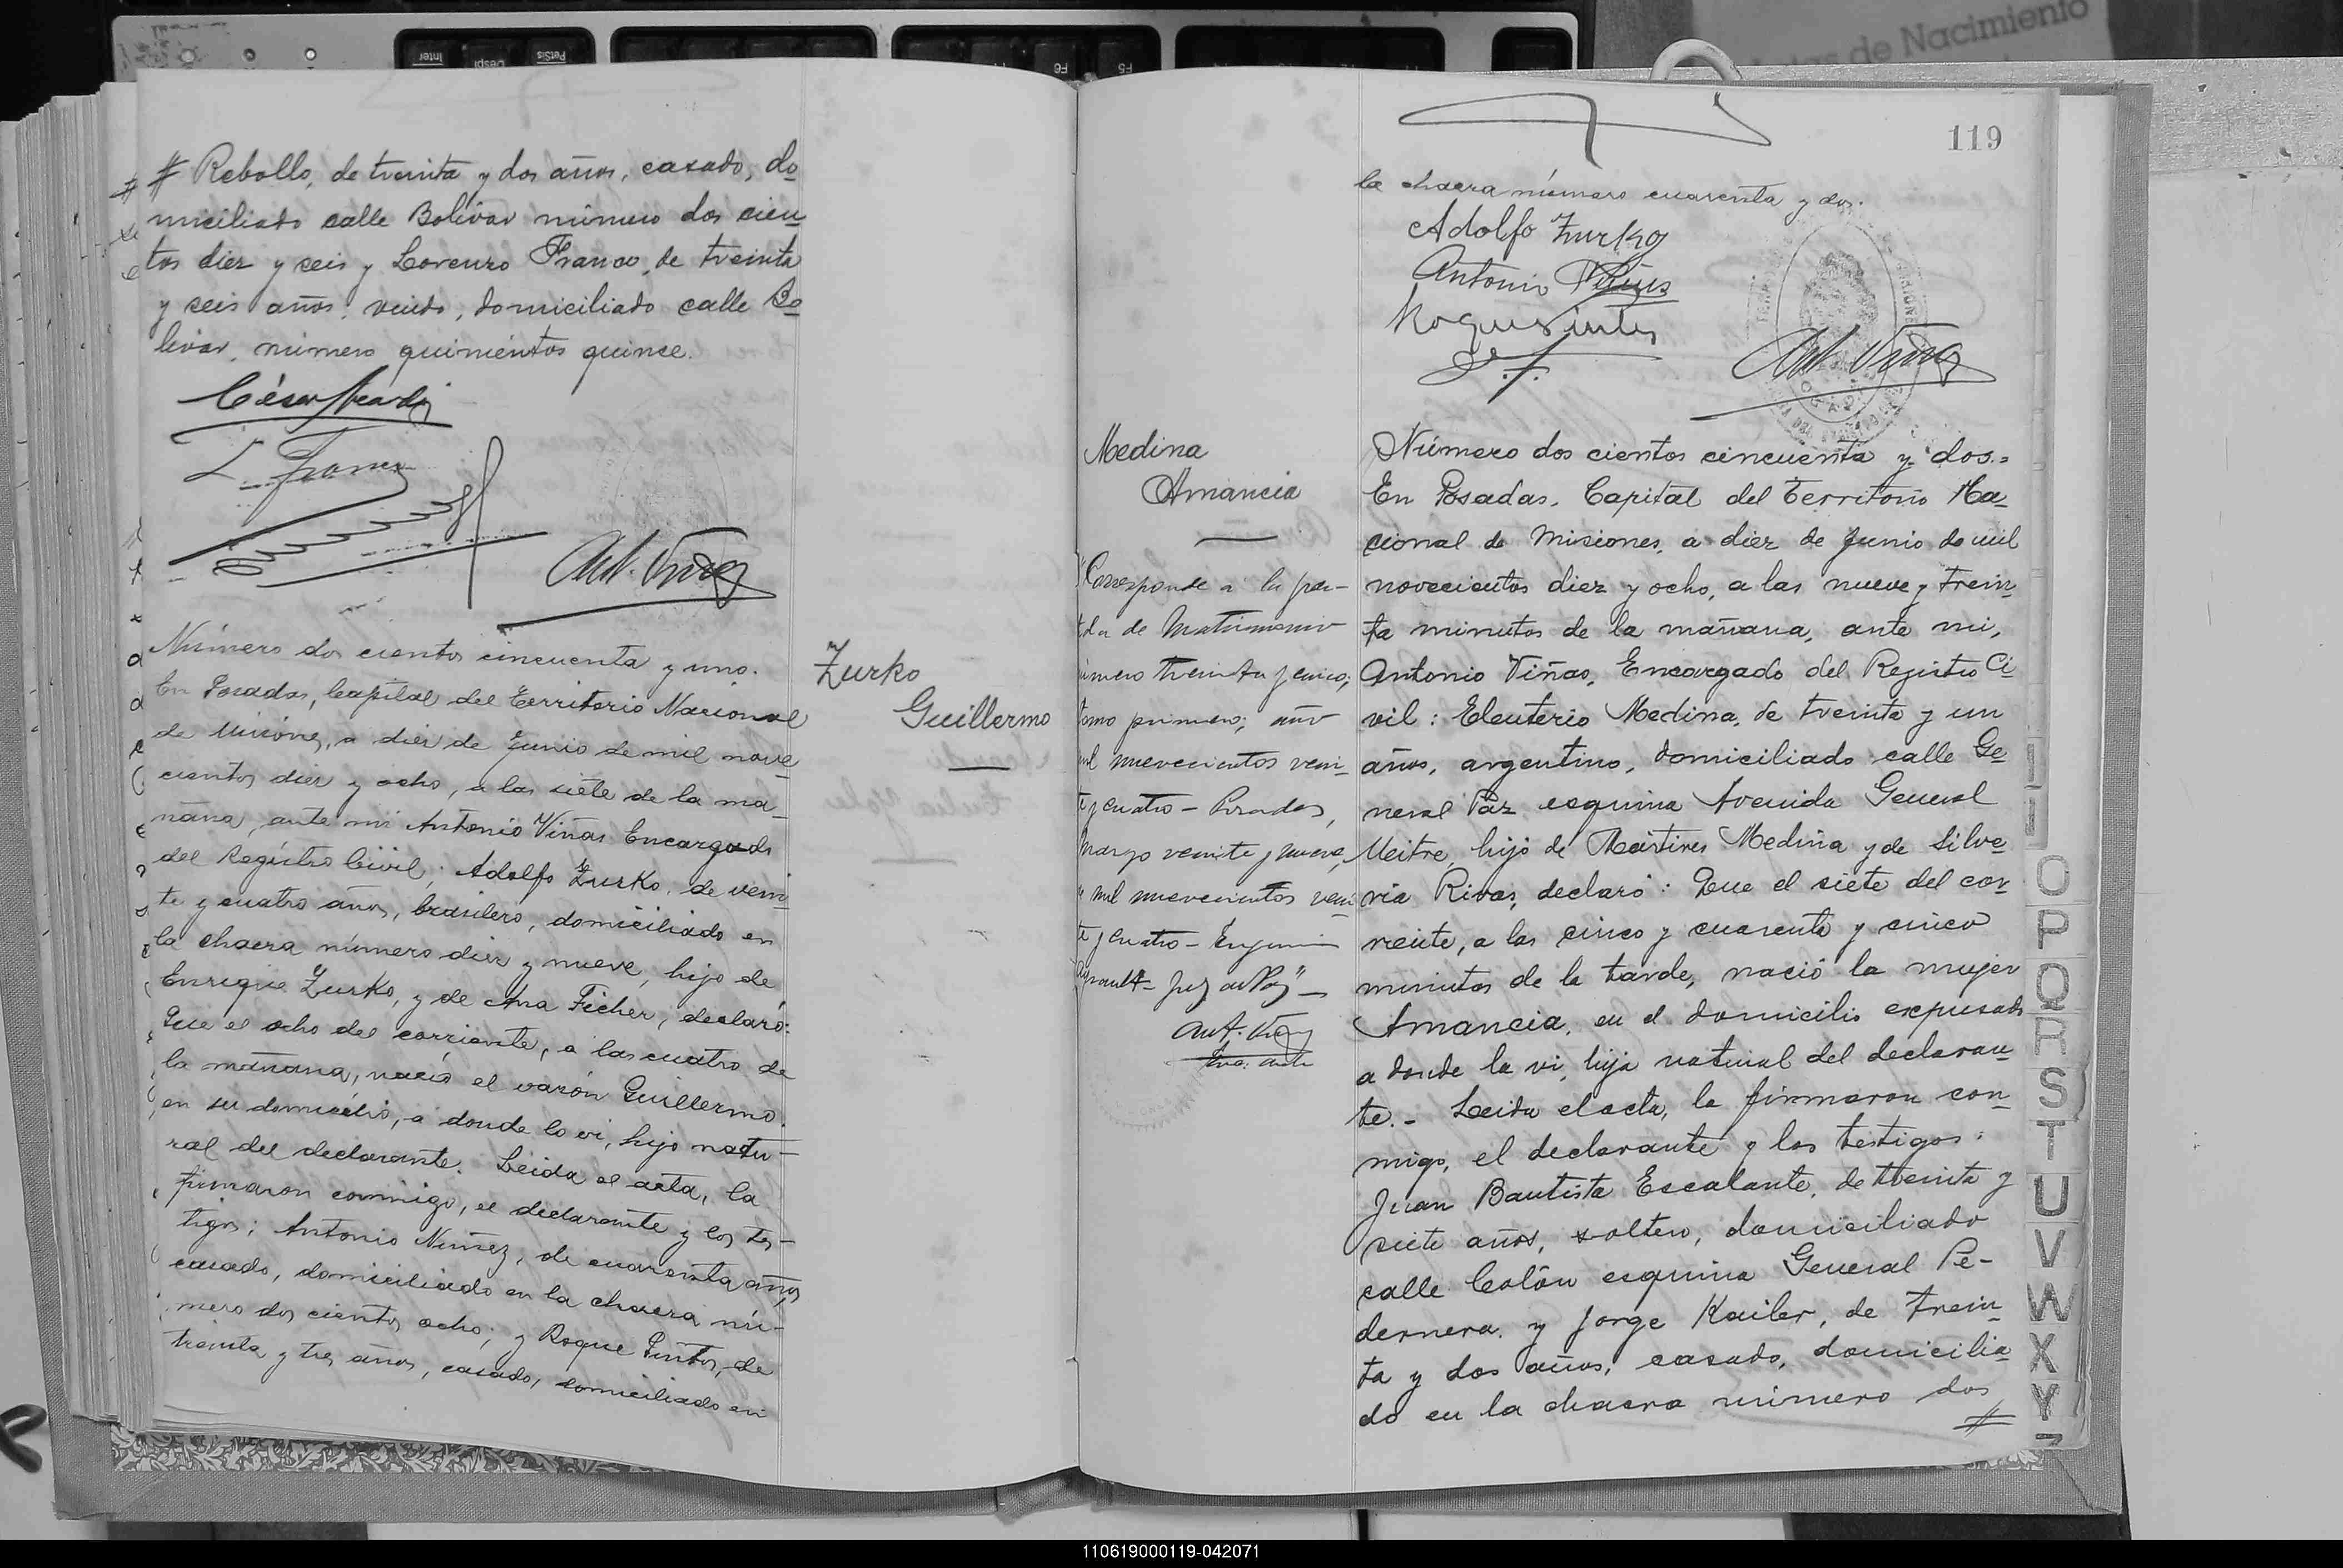 # Rebollo, de treinta y dos años, casado, do
miciliado calle Bolívar número dos cien
tos diez y seis y Lorenzo Franco, de treinta
y seis años, viudo, domiciliado calle Bo
lívar, número quinientos quince.
L. Franco
Ant. Viñas
Número dos cientos cincuenta y uno.
En Posadas, Capital del Territorio Nacional
de Misiones, a diez de Junio de mil nove
cientos diez y ocho, a las siete de la ma-
ñana, ante mi Antonio Viñas Encargado
del Registro Civil; Adolfo Zurko, de vein
te y cuatro años, brasilero, domiciliado en
la chacra número diez y nueve, hijo de
Enrique Zurko, y de Ana Ficher, declaró:
Que el ocho del corriente, a las cuatro de
la mañana, nació el varón Guillermo
en su domicilio, a donde lo vi, hijo natu-
ral del declarante. Leida el acta, la
firmaron conmigo, el declarante y los tes-
tigos; Antonio Nuñez, de cuarenta años,
casado, domiciliado en la chacra nú-
mero dos cientos ocho; y Roque Pintos, de
treinta y tres años, casado, domiciliado en
Zurko
Guillermo
119
la chacra número cuarenta y dos.
Adolfo Zurko
Antonio
Roque Pintos
Ant. Viñas
Medina
Amancia
Corresponde a la par-
tida de Matrimonio
número treinta y cinco;
tomo primero; año
mil novecientos vein-
te y cuatro - Posadas,
Marzo veinte y nueve,
mil novecientos vein
te y cuatro -
Juez de Paz" -
Ant. Viñas
Número dos cientos cincuenta y dos.=
En Posadas, Capital del Territorio Na-
cional de Misiones, a diez de Junio de mil
novecientos diez y ocho, a las nueve y trein
ta minutos de la mañana, ante mi,
Antonio Viñas, Encargado del Registro Ci
vil: Eleuterio Medina, de treinta y un
años, argentino, domiciliado calle Ge
neral Paz esquina Avenida General
Mitre, hijo de Mártires Medina y de Silve
ria Rivas, declaró: Que el siete del cor
riente, a las cinco y cuarenta y cinco
minutos de la tarde, nació la mujer
Amancia, en el domicilio expresado
a donde la vi, hija natural del declaran
te.- Leida el acta, la firmaron con
migo, el declarante y los testigos:
Juan Bautista Escalante, de treinta y
siete años, soltero, domiciliado
calle Colón esquina General Pe-
dernera, y Jorge Kailer, de trein
ta y dos años, casado, domicilia
do en la chacra número dos
#
O
P
Q
R
S
T
U
V
W
X
Y
Z
de Nacimiento
110619000119-042071